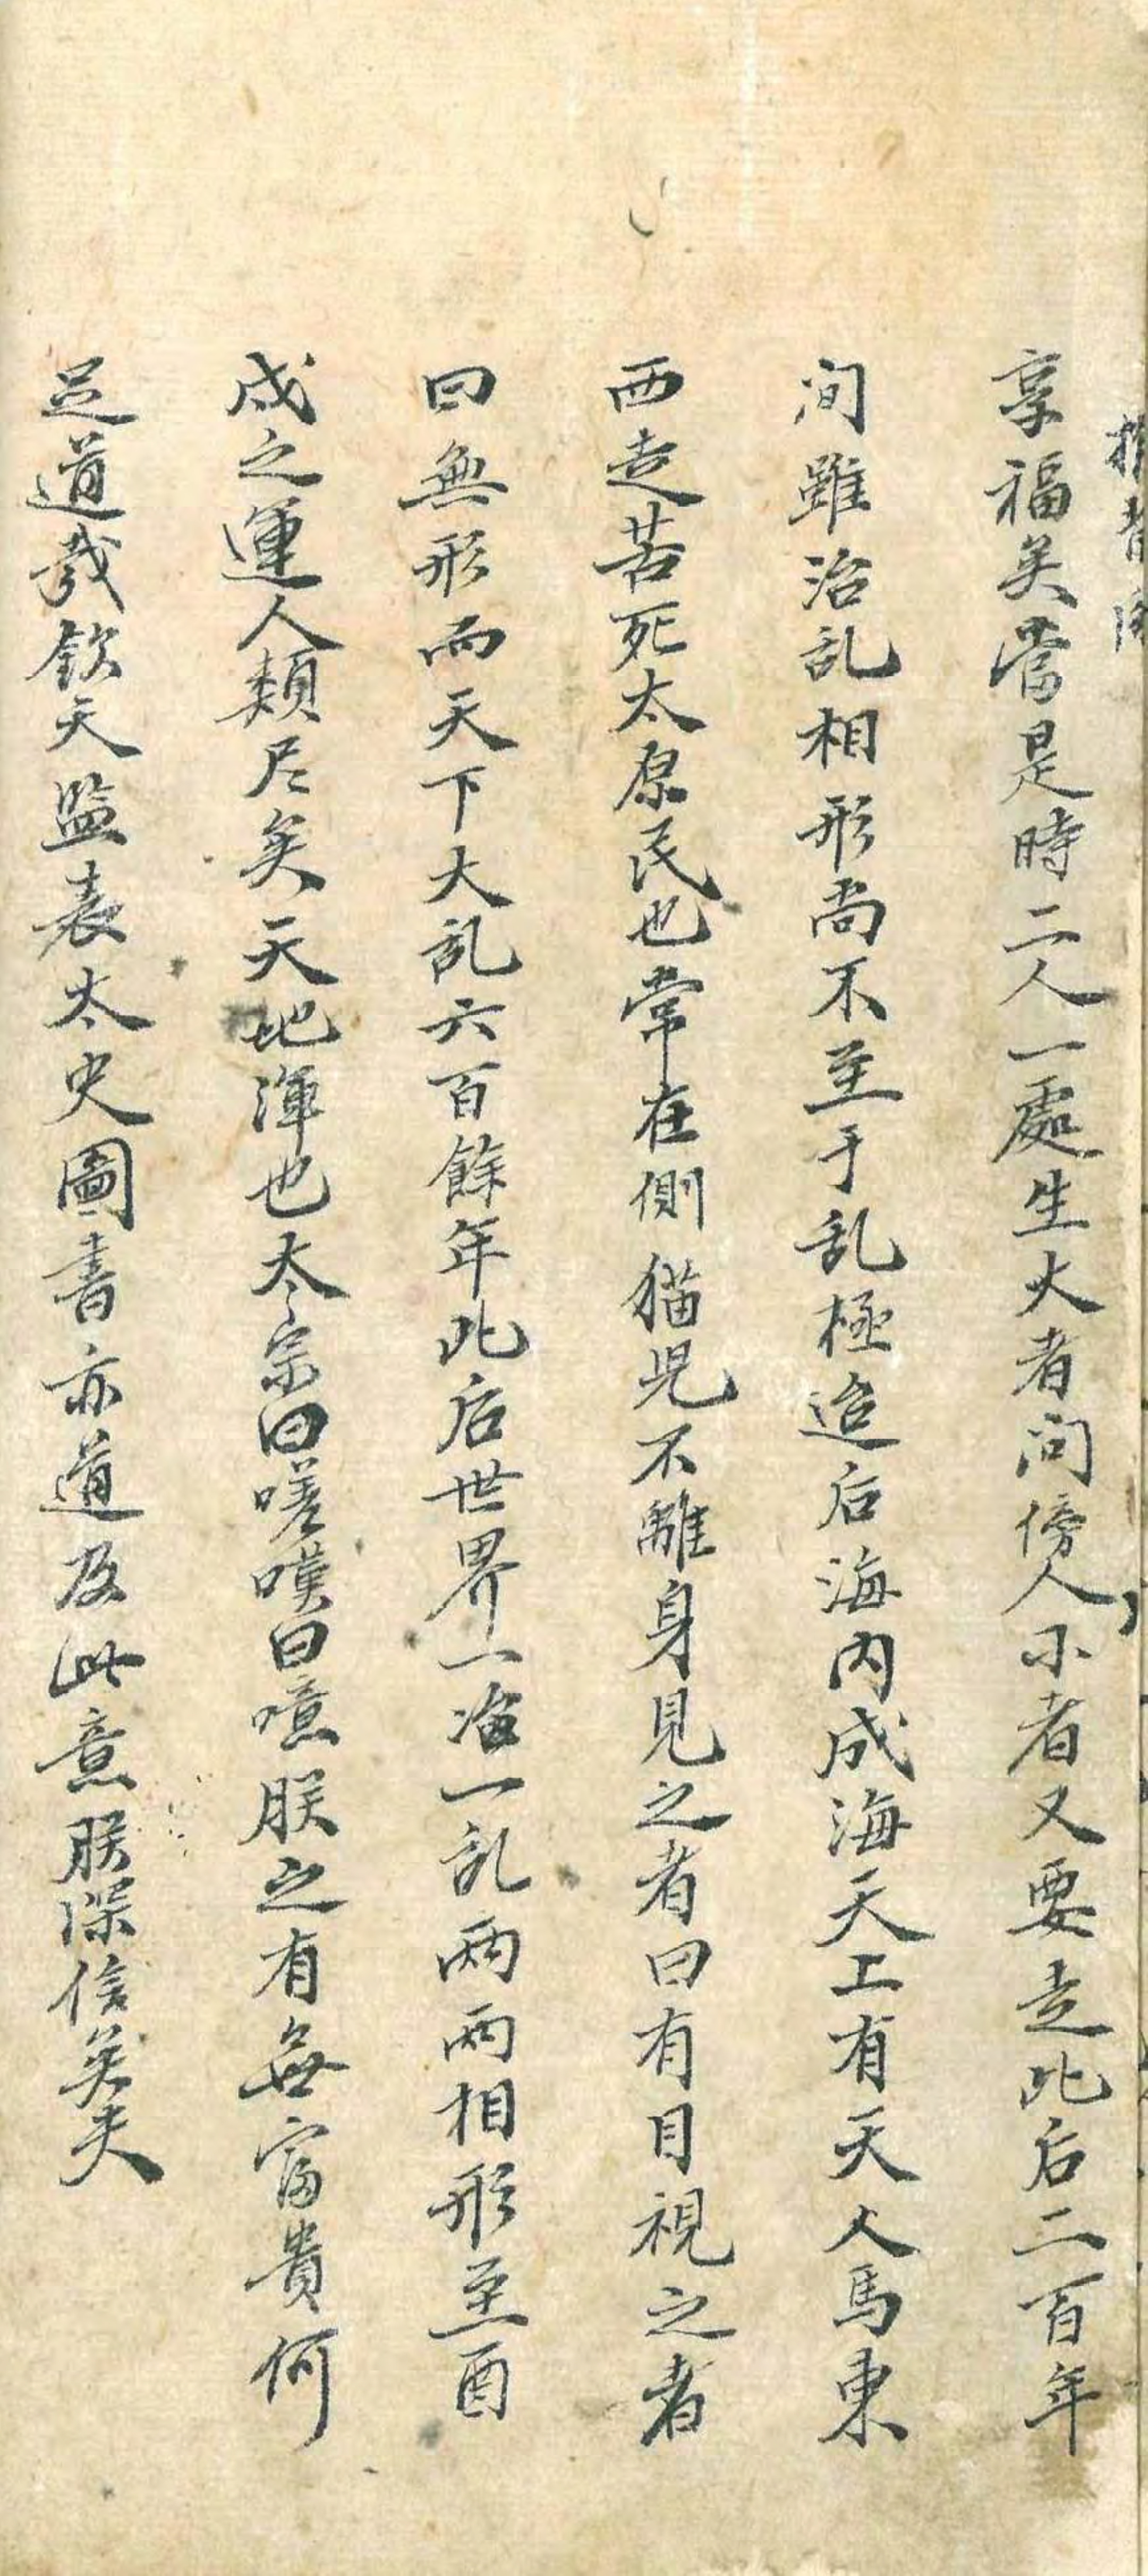 享福矣當是時二人一處生大者问傍人小者又要走此后二百年
间雖治乱相形尚不至于乱極迨后海内成海天上有天人馬東
西走苦死太原民也常在側猫児不離身見之者曰有目視之者
曰無形而天下大乱六百餘年此后世界一治一乱兩兩相形至酉
戌之運人類尽矣天地渾也太宗曰嗟嘆曰噫朕之有無富貴何
足道哉欽天監表太史圖書亦道及此意朕深信矣夫